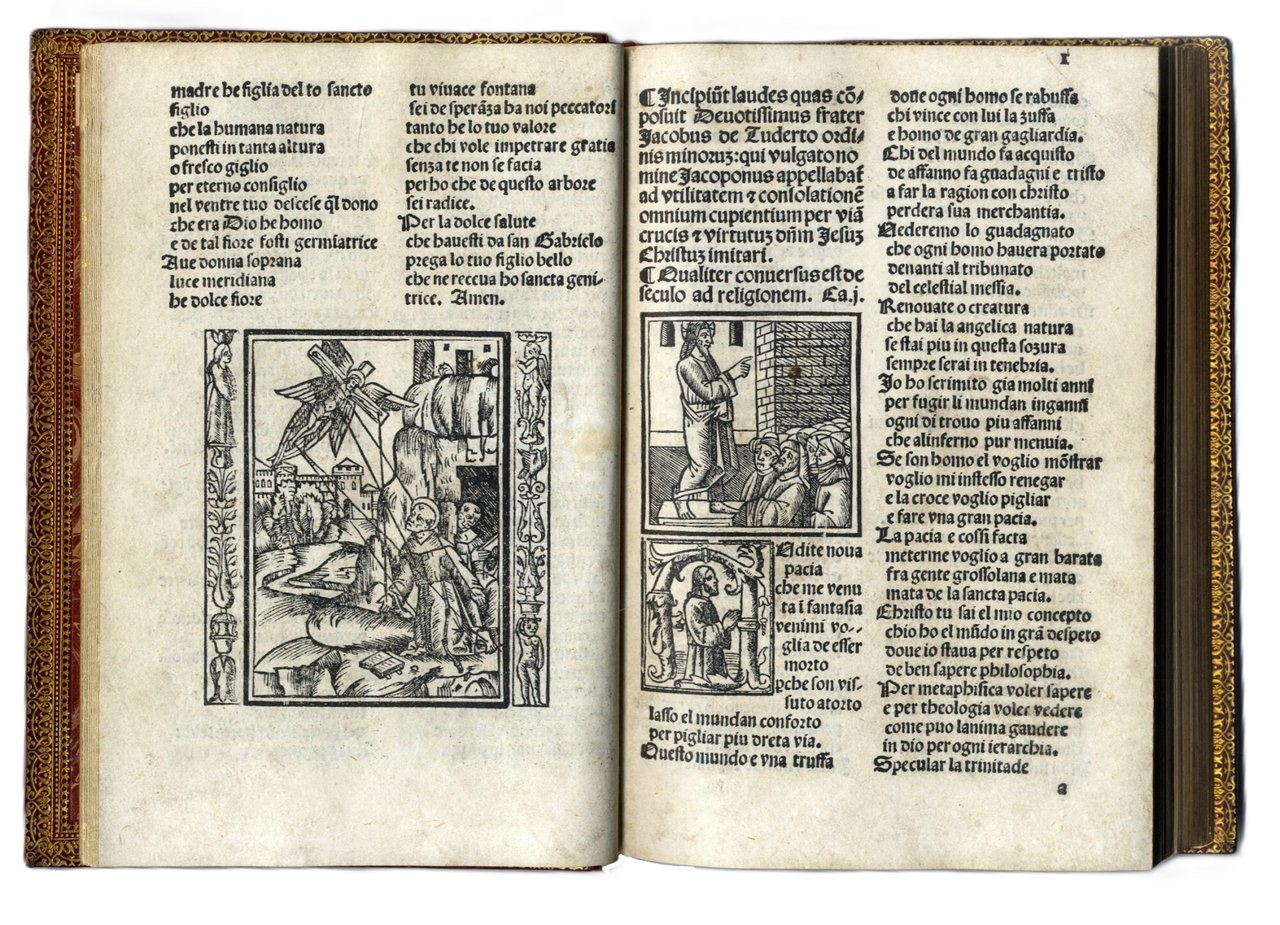 madre he figlia del to sancto
figlio
che la humana natura
ponesti in tanta altura
o fresco giglio
per eterno consiglio
nel ventre tuo descese q̃l dono
che era Dio he homo
e de tal fiore fosti germiatrice
Aue donna soprana
luce meridiana
he dolce fiore
tu viuace fontana
sei de sperãza ha noi peccatori
tanto he lo tuo valore
che chi vole impetrare gratia
senza te non se facia
perho che de questo arbore
sei radice.
Per la dolce salute
che hauesti da san Gabrielo
prega lo tuo figlio bello
che ne reccua ho sancta geni-
trice. Amen.
1
¶ Incipiũt laudes quas cõ/
posuit Deuotissimus frater
Jacobus de Tuderto ordi/
nis minoruꝫ: qui vulgato no
mine Jacoponus appellabat̃
ad vtilitatem ⁊ consolationẽ
omnium cupientium per viã
crucis ⁊ virtutuꝫ dñm Jesuꝫ
Christuꝫ imitari.
¶ Qualiter conuersus est de
seculo ad religionem. Ca.j.
Udite noua
pacia
che me venu
ta ĩ fantasia
venimi vo-
glia de esser
morto
ꝑche son vis-
suto atorto
lasso el mundan conforto
per pigliar piu dreta via.
Questo mundo e vna truffa
doue ogni homo se rabuffa
chi vince con lui la zuffa
e homo de gran gagliardia.
Chi del mundo fa acquisto
de affanno fa guadagni e tristo
a far la ragion con christo
perdera sua merchantia.
Uederemo lo guadagnato
che ogni homo hauera portato
denanti al tribunato
del celestial messia.
Renouate o creatura
che hai la angelica natura
se stai piu in questa sozura
sempre serai in tenebria.
Io ho scrimito gia molti anni
per fugir li mundan inganni
ogni di trouo piu affanni
che alinferno pur menuia.
Se son homo el voglio mõstrar
voglio mi instesso renegar
e la croce voglio pigliar
e fare vna gran pacia.
La pacia e cossi facta
meterme voglio a gran barata
fra gente grossolana e mata
mata de la sancta pacia.
Christo tu sai el mio concepto
chio ho el mũdo in grã despeto
doue io staua per respeto
de ben sapere philosophia.
Per metaphisica voler sapere
e per theologia voler vedere
come puo lanima gaudere
in dio per ogni ierarchia.
Specular la trinitade
a